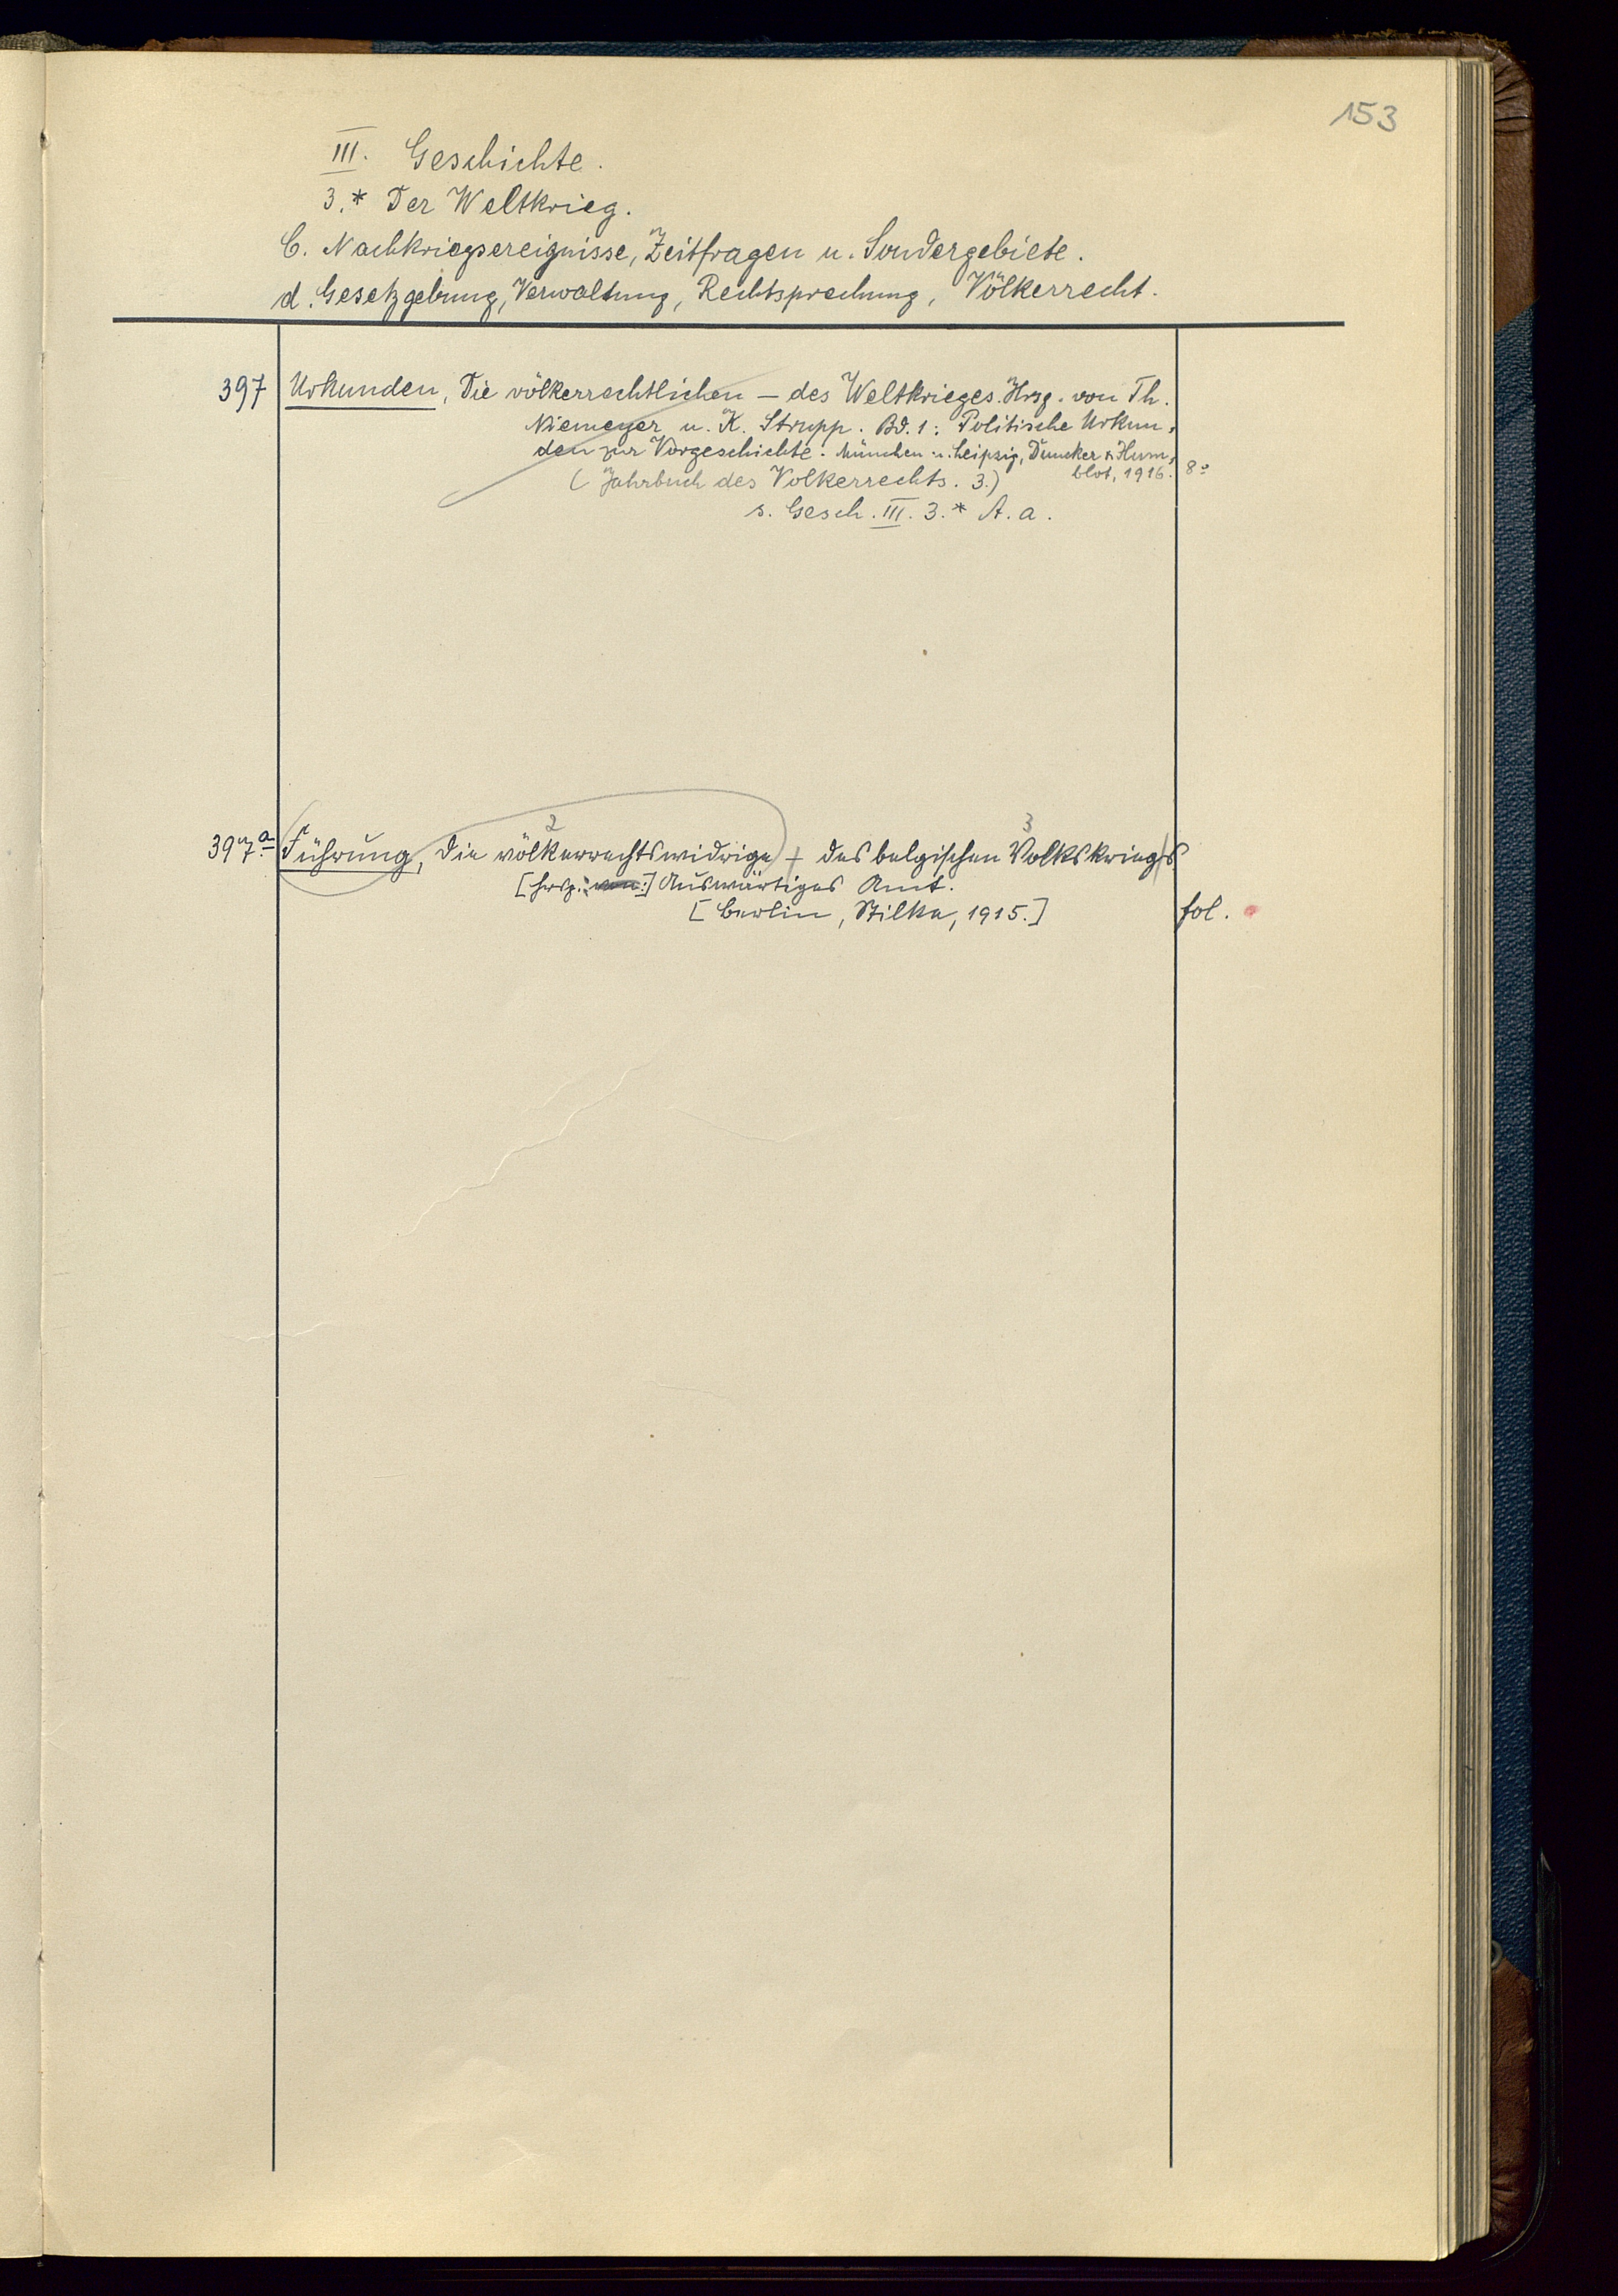 153
III. Geschichte.
3.* Der Weltkrieg.
C. Nachkriegsereignisse, Zeitfragen u. Sondergebiete.
d. Gesetzgebung, Verwaltung, Rechtsprechung, Völkerrecht.
397 Urkunden, Die völkerrechtlichen – des Weltkrieges. Hrsg. von Th.
Niemeyer u. K. Strupp. Bd. 1: Politische Urkun-
den zur Vorgeschichte. München u. Leipzig, Duncker & Hum-
blot, 1916. 8°
(Jahrbuch des Völkerrechts. 3.)
s. Gesch. III. 3.* A. a.
2 3
397a. Führung, Die völkerrechtswidrige + des belgischen Volkskriegs
[Hrsg.:] Auswärtiges Amt.
[Berlin, Stilke, 1915.] fol.